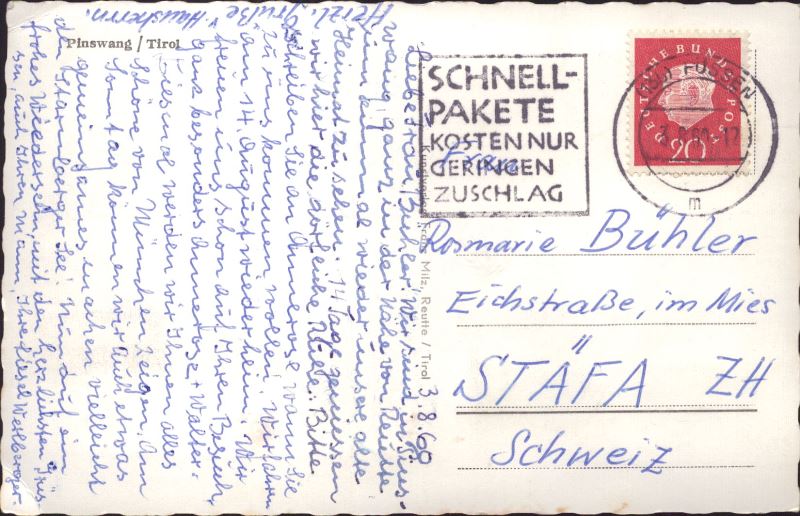 Pinswang / Tirol
3.8.60
Liebe Frau Bühler! Wir sind in Pins-
wang ganz in der Nähe von Reutte
um einmal wieder unsere alte
Heimat zu sehen. 14 Tage genießen
wir hier die göttliche Stille. Bitte
schreiben Sie an Annerose wann Sie
zu uns kommen wollen. Wir fahren
am 14. August wieder heim. Wir
freuen uns schon auf Ihren Besuch,
ganz besonders Annerose + Walter.
Diesmal werden wir Ihnen alles
Schöne von München zeigen. Am
Sonntag können wir auch etwas
gemeinsames machen vielleicht
den Starnberger See. Nun auf ein
frohes Wiedersehen mit den herzlichsten Grüs-
sen, auch Ihrem Mann, Ihre Liesel
Herzl. Grüße
SCHNELL-
PAKETE
KOSTEN NUR
GERINGEN
ZUSCHLAG
DEUTSCHE BUNDESPOST
20
(13b) FÜSSEN
m
Kunstverlag Franz Milz, Reutte / Tirol
Frau
Rosmarie Bühler
Eichstraße, im Mies
STÄFA ZH
Schweiz